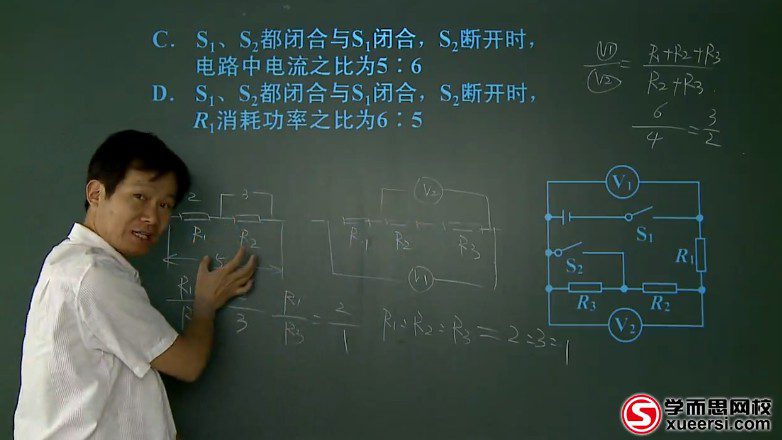 C. S1、S2都闭合与S1闭合，S2断开时，
电路中电流之比为5∶6
D. S1、S2都闭合与S1闭合，S2断开时，
R1消耗功率之比为6∶5
V1/V2 = R1+R2+R3/R2+R3
6/4 = 3/2
2 3
R1 R2
R1 R2 R3
V2
V1
R1 3
R1/R3 = 2/1
R1:R2:R3=2:3:1
V1
S1
R1
S2
R3 R2
V2
S 学而思网校
xueersi.com